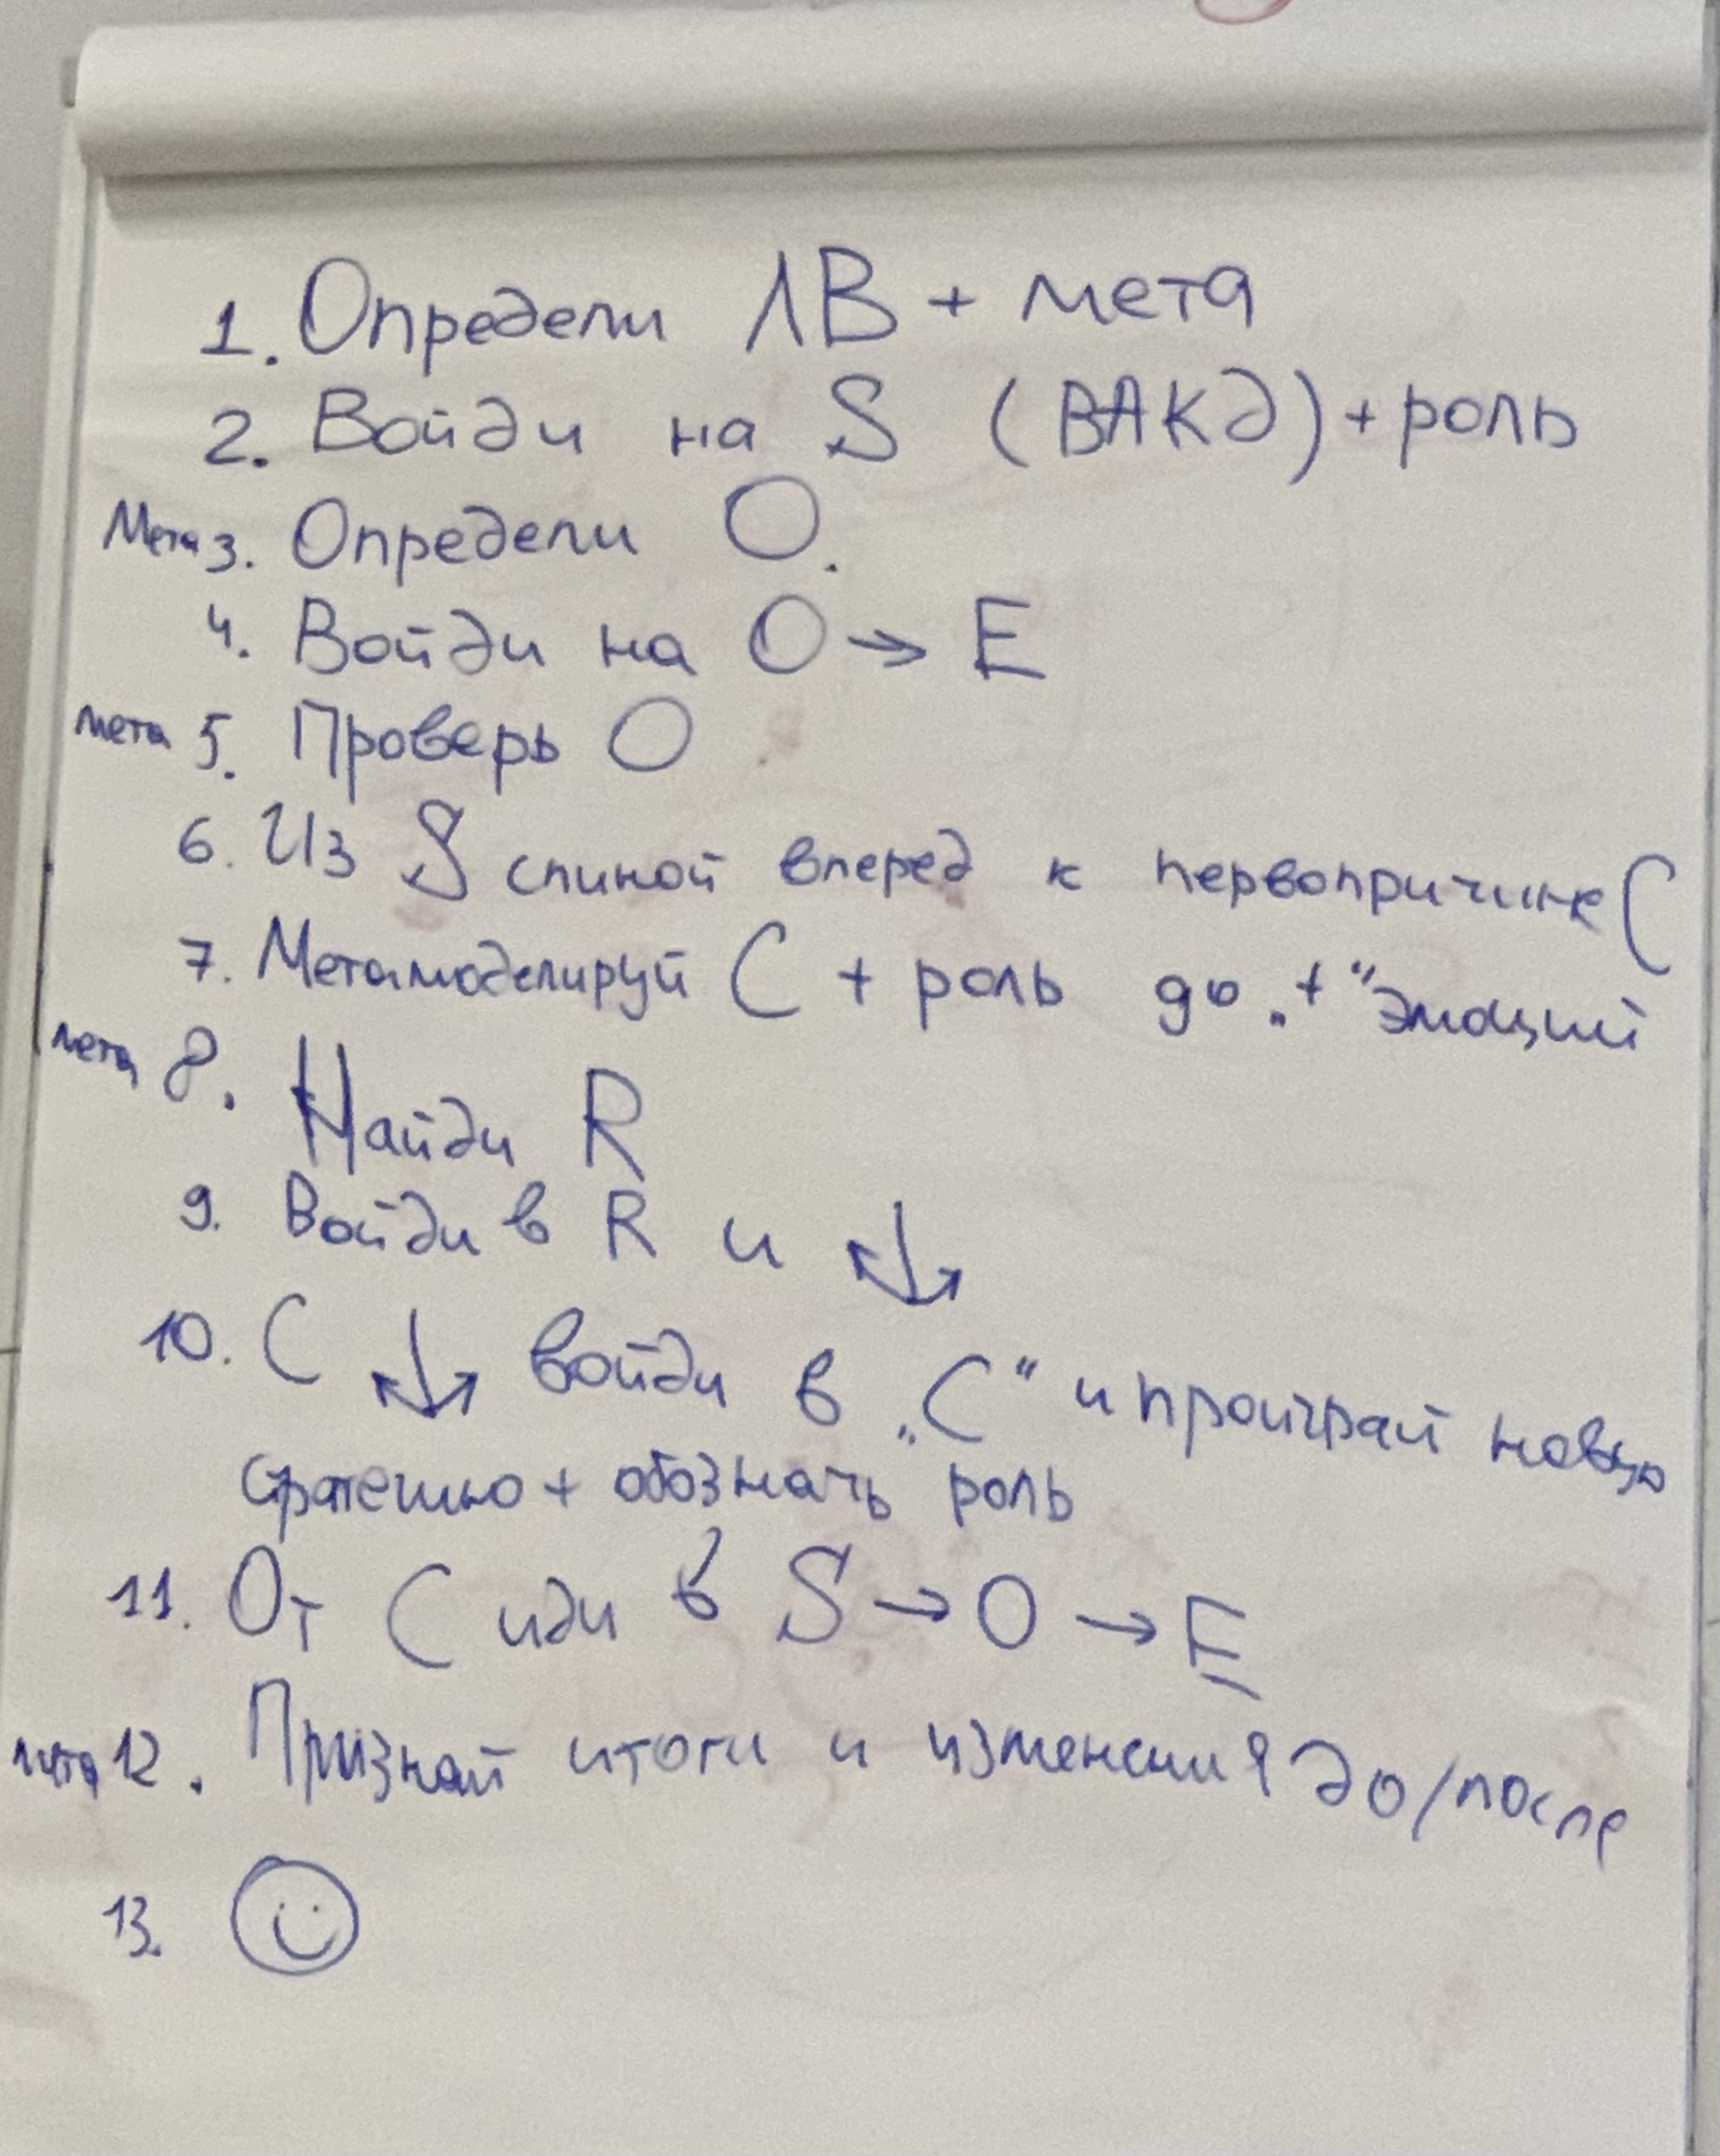 1. Определи ЛВ + мета
2. Войди на S (ВАКД) + роль
Мета 3. Определи О.
4. Войди на О → Е
мета 5. Проверь О
6. Из S спиной вперед к первопричине С
7. Метамоделируй С + роль до „+“ эмоций
мета 8. Найди R
9. Войди в R и ↓
10. С ↓ войди в „С“ и проиграй новую
стратегию + обозначь роль
11. От С иди в S → О → Е
мета 12. Признай итоги и изменения до/после
13.